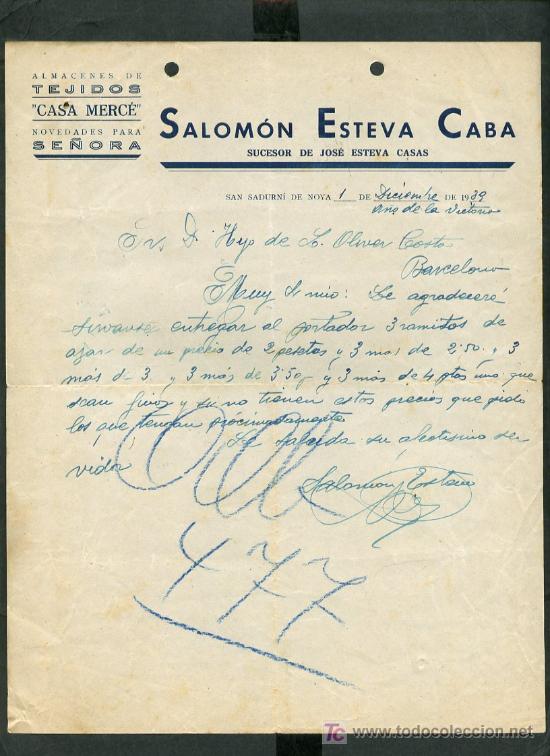 ALMACENES DE
TEJIDOS
"CASA MERCÉ"
NOVEDADES PARA
SEÑORA
SALOMÓN ESTEVA CABA
SUCESOR DE JOSÉ ESTEVA CASAS
SAN SADURNÍ DE NOYA 1 DE Diciembre DE 1939
Año de la Victoria
Sr. D. Hijo de S. Oliver Costa
Barcelona
Muy Sr mio: Le agradeceré
sirvanse entregar al portador 3 ramitos de
azar de un precio de 2 pesetas y 3 mas de 2'50, y 3
más de 3 y 3 más de 3'50 y 3 más de 4 ptas uno que
sean finos y si no tienen estos precios que pido
los que tengan próximamente
Le saluda su atentisimo ser
vidor
Salomon Esteva
477
todocoleccion
www.todocoleccion.net